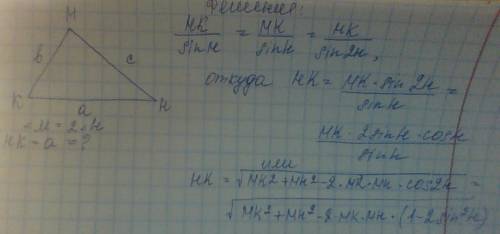 Решения:
M
b
c
K
a
H
∠M = 2∠H
HK = a = ?
MK/sinH = MK/sinH = HK/sin2H,
откуда HK = MK·sin2H/sinH =
MK·2sinH·cosH/sinH
или
HK = √MK²+MH²-2·MK·MH·cos2H =
√MK²+MH²-2·MK·MH·(1-2sin²H)